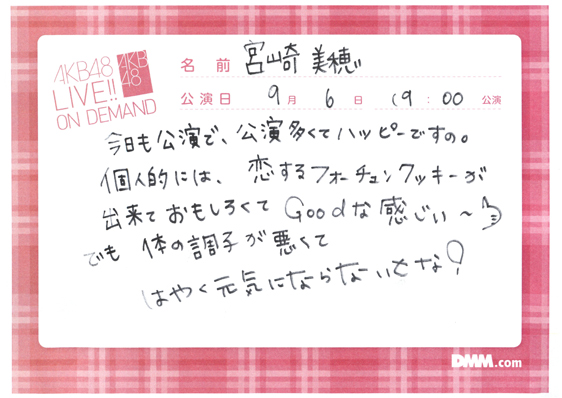 AKB48
LIVE!!
ON DEMAND
AKB
48
名前 宮崎美穂
公演日 9月 6日 19:00 公演
今日も公演で、公演多くてハッピーですの。
個人的には、恋するフォーチュンクッキーが
出来ておもしろくて Goodな感じぃ〜
でも 体の調子が悪くて
はやく元気にならないとな!
DMM.com